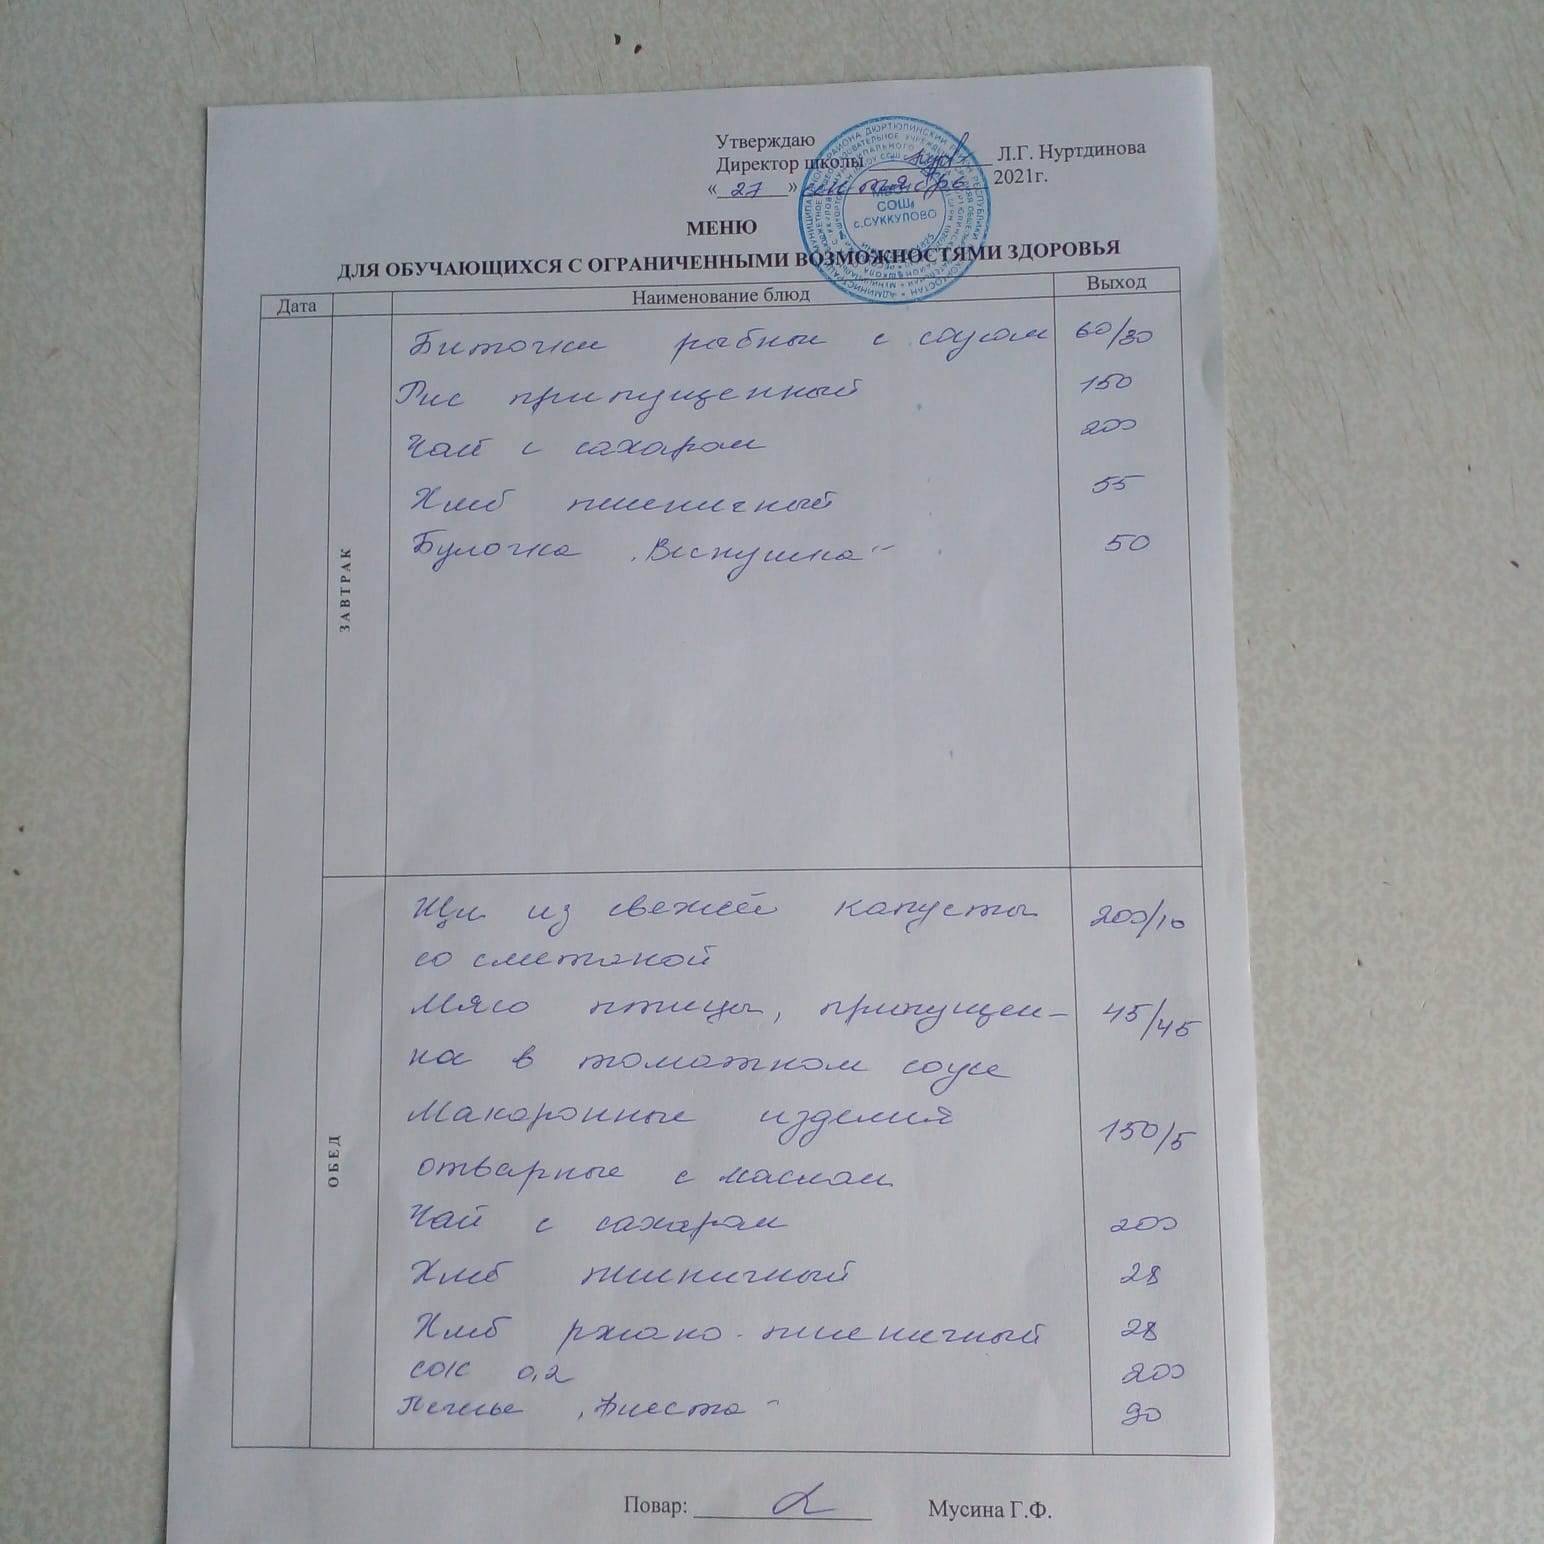 Утверждаю
Директор школы Л.Г. Нуртдинова
« 27 » сентябрь 2021г.
СОШ
с.СУККУЛОВО
МЕНЮ
ДЛЯ ОБУЧАЮЩИХСЯ С ОГРАНИЧЕННЫМИ ВОЗМОЖНОСТЯМИ ЗДОРОВЬЯ
Дата Наименование блюд Выход
ЗАВТРАК
Биточки рыбные с соусом 60/30
Рис припущенный 150
Чай с сахаром 200
Хлеб пшеничный 55
Булочка „Веснушка" 50
ОБЕД
Щи из свежей капусты 200/10
со сметаной
Мясо птицы, припущен- 45/45
на в томатном соусе
Макаронные изделия 150/5
отварные с маслом
Чай с сахаром 200
Хлеб пшеничный 28
Хлеб ржано-пшеничный 28
сок 0,2 200
Печенье 90
Повар: Мусина Г.Ф.